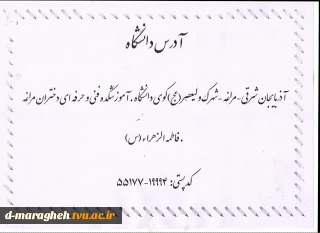 آدرس دانشگاه
آذربایجان شرقی - مراغه - شهرک ولیعصر (عج) کوی دانشگاه ، آموزشکده فنی و حرفه ای دختران مراغه
، فاطمه الزهراء (س)
کد پستی: ۱۹۹۹۴-۵۵۱۷۷
d-maragheh.tvu.ac.ir